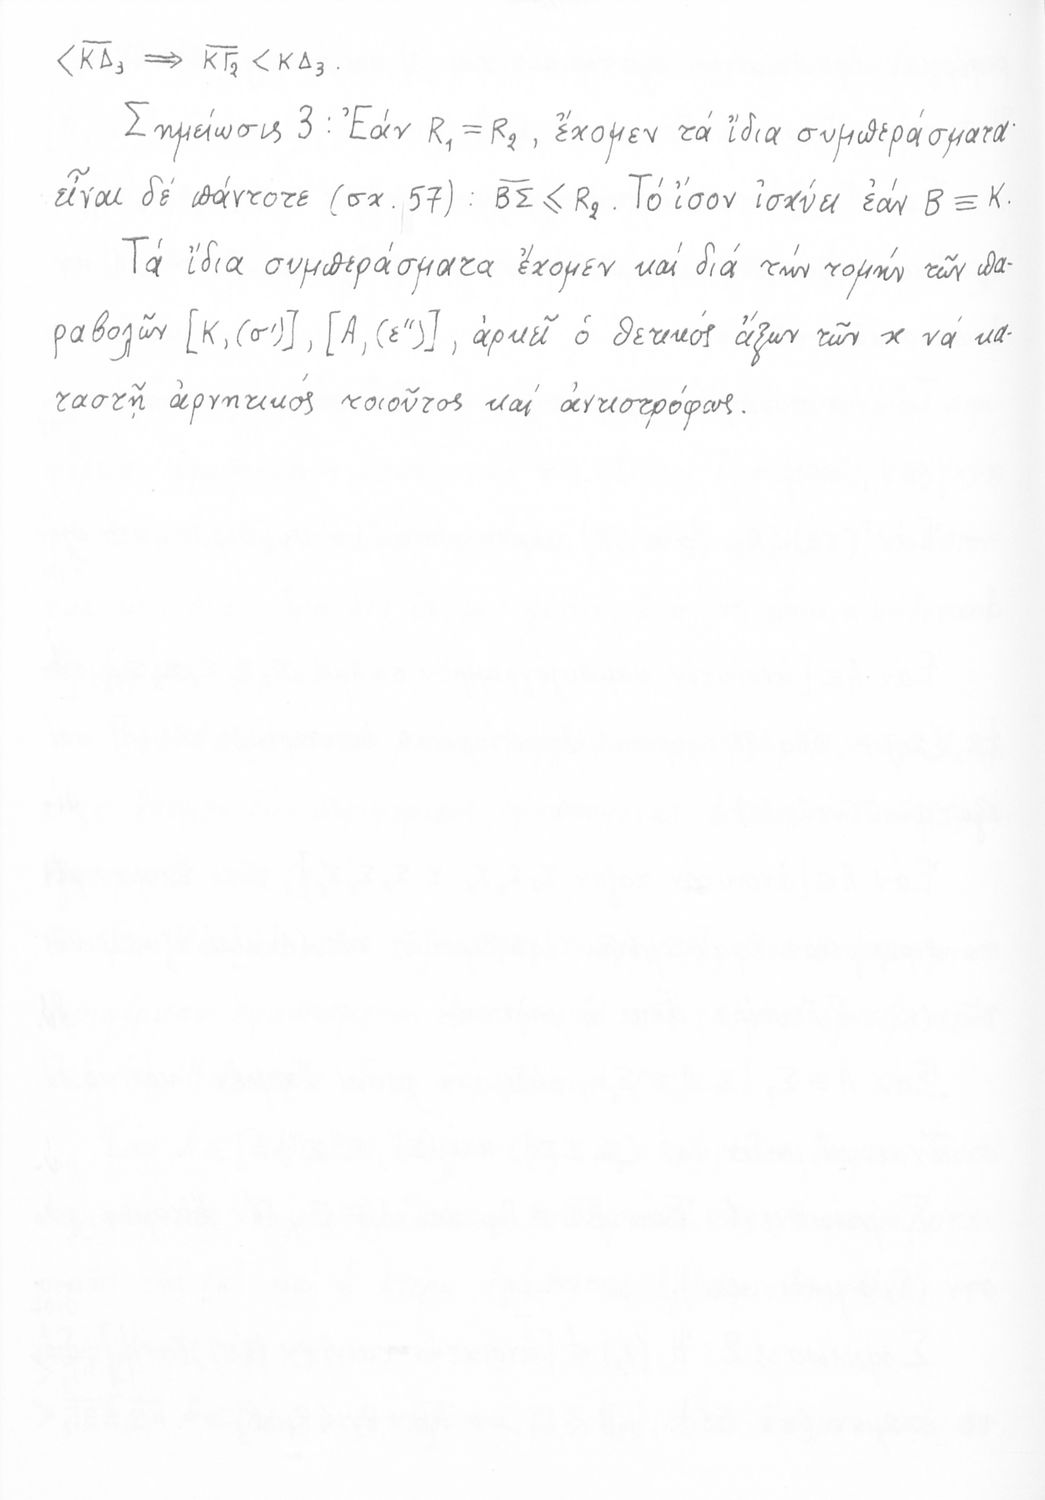 < \overline{ΚΔ}₃ ⟹ \overline{ΚΓ}₂ < ΚΔ₃.
Σημείωσις 3 : Ἐάν R₁ = R₂ , ἔχομεν τά ἴδια συμπεράσματα·
εἶναι δέ πάντοτε (σχ. 57) : \overline{ΒΣ} ⩽ R₂. Τό ἴσον ἰσχύει ἐάν Β ≡ Κ.
Τά ἴδια συμπεράσματα ἔχομεν καί διά τήν τομήν τῶν πα-
ραβολῶν [Κ,(σ')] , [Α,(ε'')] , ἀρκεῖ ὁ θετικός ἄξων τῶν x νά κα-
ταστῇ ἀρνητικός τοιοῦτος καί ἀντιστρόφως.